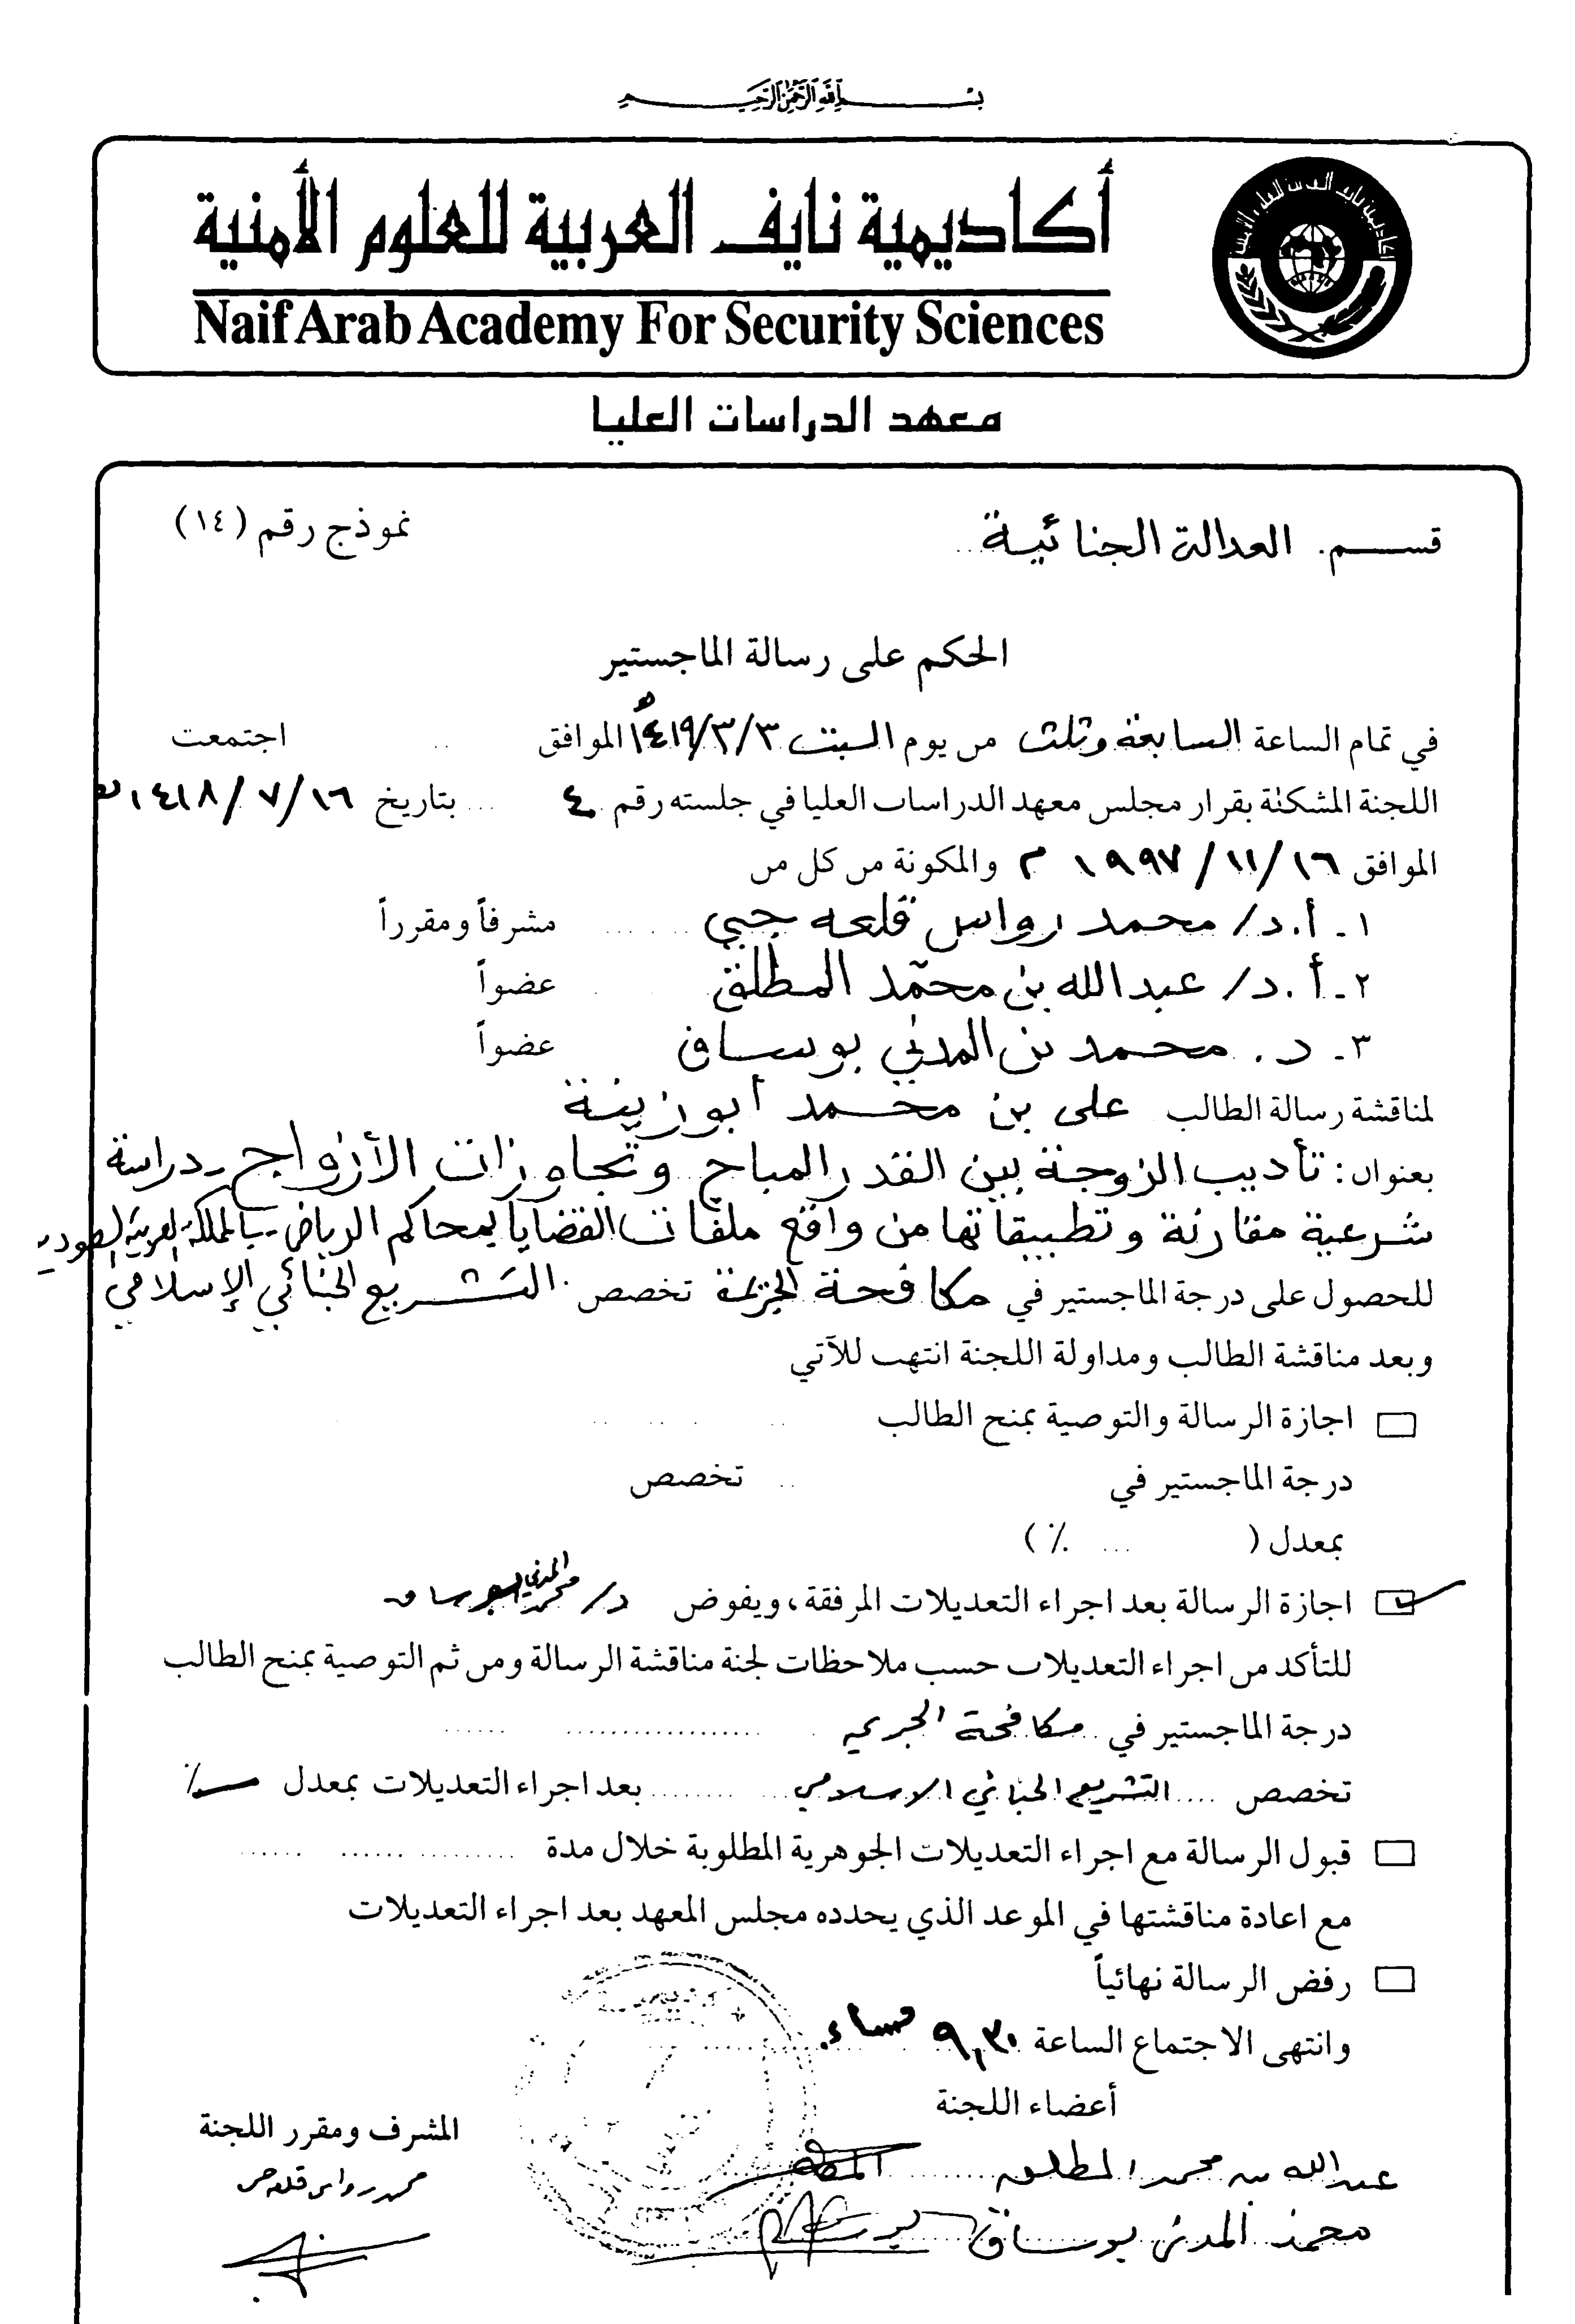 بسم الله الرحمن الرحيم
أكاديمية نايف العربية للعلوم الأمنية
Naif Arab Academy For Security Sciences
معهد الدراسات العليا
قسم. العدالة الجنائية
نموذج رقم (١٤)
الحكم على رسالة الماجستير
في تمام الساعة السابعة وثلث من يوم السبت ١٤١٩/٣/٣هـ الموافق .. اجتمعت
اللجنة المشكلة بقرار مجلس معهد الدراسات العليا في جلسته رقم ٤ ... بتاريخ ١٤١٨/٧/١٦هـ
الموافق ١٩٩٧/١١/١٦ م والمكونة من كل من
١- أ.د/ محمد رواس قلعه جي ...... مشرفاً ومقرراً
٢- أ.د/ عبدالله بن محمد المطلق .. عضواً
٣- د. محمد بن المدني بوساق عضواً
لمناقشة رسالة الطالب على بن محمد أبوزينة
بعنوان: تأديب الزوجة بين القدر المباح وتجاوزات الأزواج - دراسة
شرعية مقارنة وتطبيقاتها من واقع ملفات القضايا بمحاكم الرياض - بالمملكة العربية السعودية
للحصول على درجة الماجستير في مكافحة الجريمة تخصص التشريع الجنائي الإسلامي
وبعد مناقشة الطالب ومداولة اللجنة انتهت للآتي
اجازة الرسالة والتوصية بمنح الطالب
درجة الماجستير في .. تخصص
بمعدل ( ... ٪)
اجازة الرسالة بعد اجراء التعديلات المرفقة، ويفوض د/ محمد المدني بوساق
للتأكد من اجراء التعديلات حسب ملاحظات لجنة مناقشة الرسالة ومن ثم التوصية بمنح الطالب
درجة الماجستير في مكافحة الجريمه
تخصص .... التشريع الجنائي الاسلامي ........ بعد اجراء التعديلات بمعدل ـ ٪
قبول الرسالة مع اجراء التعديلات الجوهرية المطلوبة خلال مدة ..................
مع اعادة مناقشتها في الموعد الذي يحدده مجلس المعهد بعد اجراء التعديلات
رفض الرسالة نهائياً
وانتهى الاجتماع الساعة ٩,٣٠ مساء.
أعضاء اللجنة
المشرف ومقرر اللجنة
عبدالله بن محمد المطلق
محمد رواس قلعه جي
محمد المدني بوساق